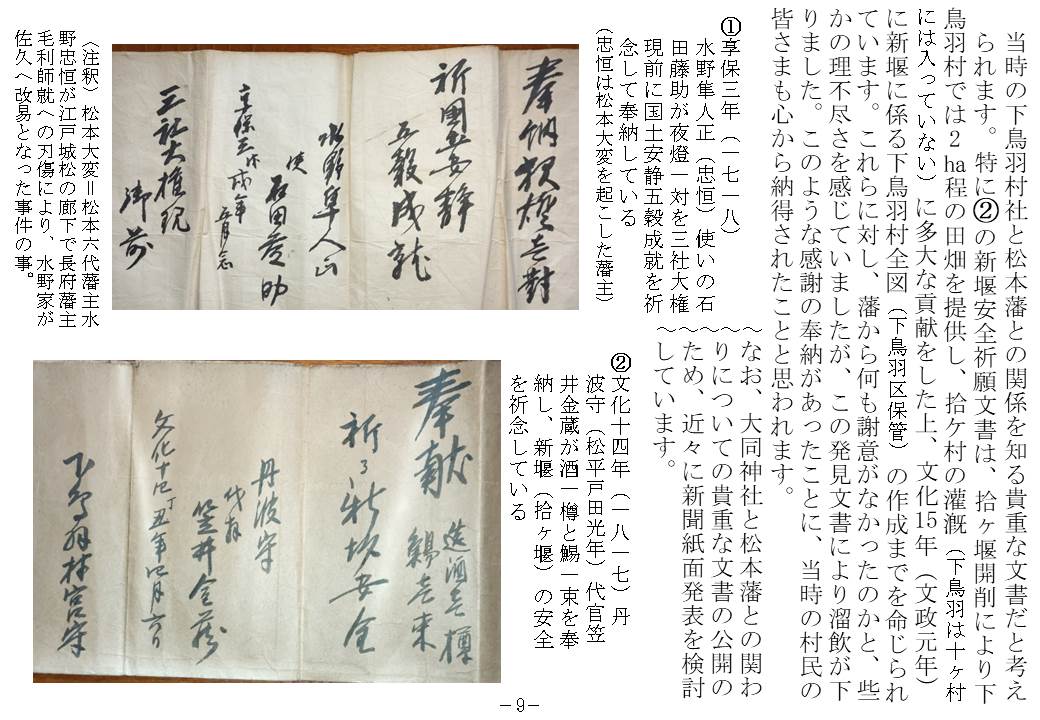 当時の下鳥羽村社と松本藩との関係を知る貴重な文書だと考え
られます。特に②の新堰安全祈願文書は、拾ヶ堰開削により下
鳥羽村では2ha程の田畑を提供し、拾ケ村の灌漑（下鳥羽は十ヶ村
には入っていない）に多大な貢献をした上、文化15年（文政元年）
に新堰に係る下鳥羽村全図（下鳥羽区保管）の作成までを命じられ
ています。これらに対し、藩から何も謝意がなかったのかと、些
かの理不尽さを感じていましたが、この発見文書により溜飲が下
りました。このような感謝の奉納があったことに、当時の村民の
皆さまも心から納得されたことと思われます。
～なお、大同神社と松本藩との関わ
～りについての貴重な文書の公開の
～ため、近々に新聞紙面発表を検討
～しています。
①享保三年（一七一八）
水野隼人正（忠恒）使いの石
田藤助が夜燈一対を三社大権
現前に国土安静五穀成就を祈
念して奉納している
（忠恒は松本大変を起こした藩主）
奉納夜燈壱對
祈国土安静
五穀成就
水野隼人正
使
石田藤助
享保三戊戌年
三社大権現
御前
（注釈）松本大変＝松本六代藩主水
野忠恒が江戸城松の廊下で長府藩主
毛利師就への刃傷により、水野家が
佐久へ改易となった事件の事。
②文化十四年（一八一七）丹
波守（松平戸田光年）代官笠
井金蔵が酒一樽と鰑一束を奉
納し、新堰（拾ヶ堰）の安全
を祈念している
奉献
造酒壱樽
鰑壱束
丹波守
代官
笠井金蔵
文化十四丁丑年四月
下鳥羽村宮守
－9－